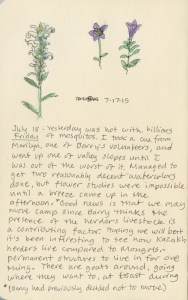 7-17-15
July 18 - Yesterday was hot with billions
Friday of mosquitos. I took a cue from
Marilyn, one of Barry's volunteers, and
went up one of valley slopes until I
was out of the worst of it. Managed to
get two reasonably decent watercolors
done, but flower studies were impossible
until a breeze came up in the
afternoon. Good news is that we may
move camp since Barry thinks the
presence of the herders livestock is
a contributing factor. Hoping we will bet
it's been interesting to see how Kazakh
herders live compared to Mongols -
permanent structures to live in for one
thing. There are goats around, going
where they want to, at least during
(Barry had previously decided not to move)